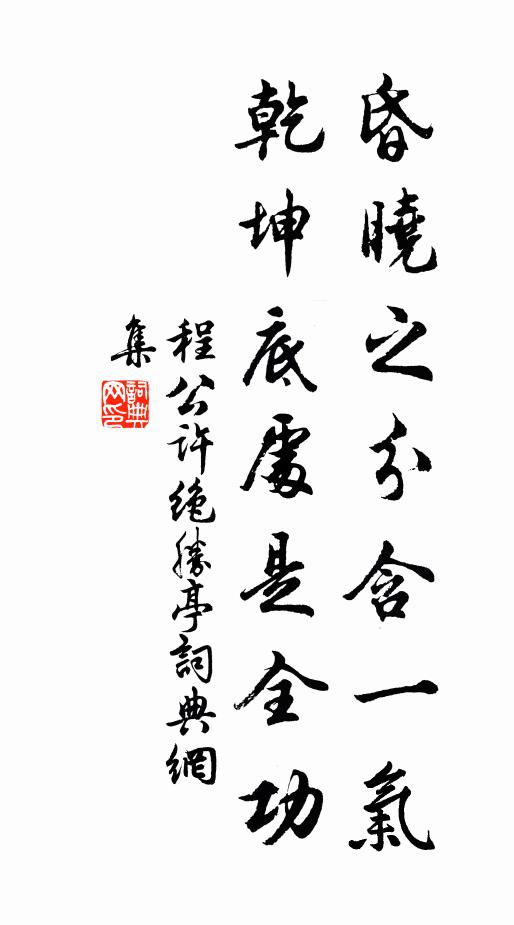 昏曉之分含一氣
乾坤底處是全功
程公許絶勝亭詞典網
集
詞典網印